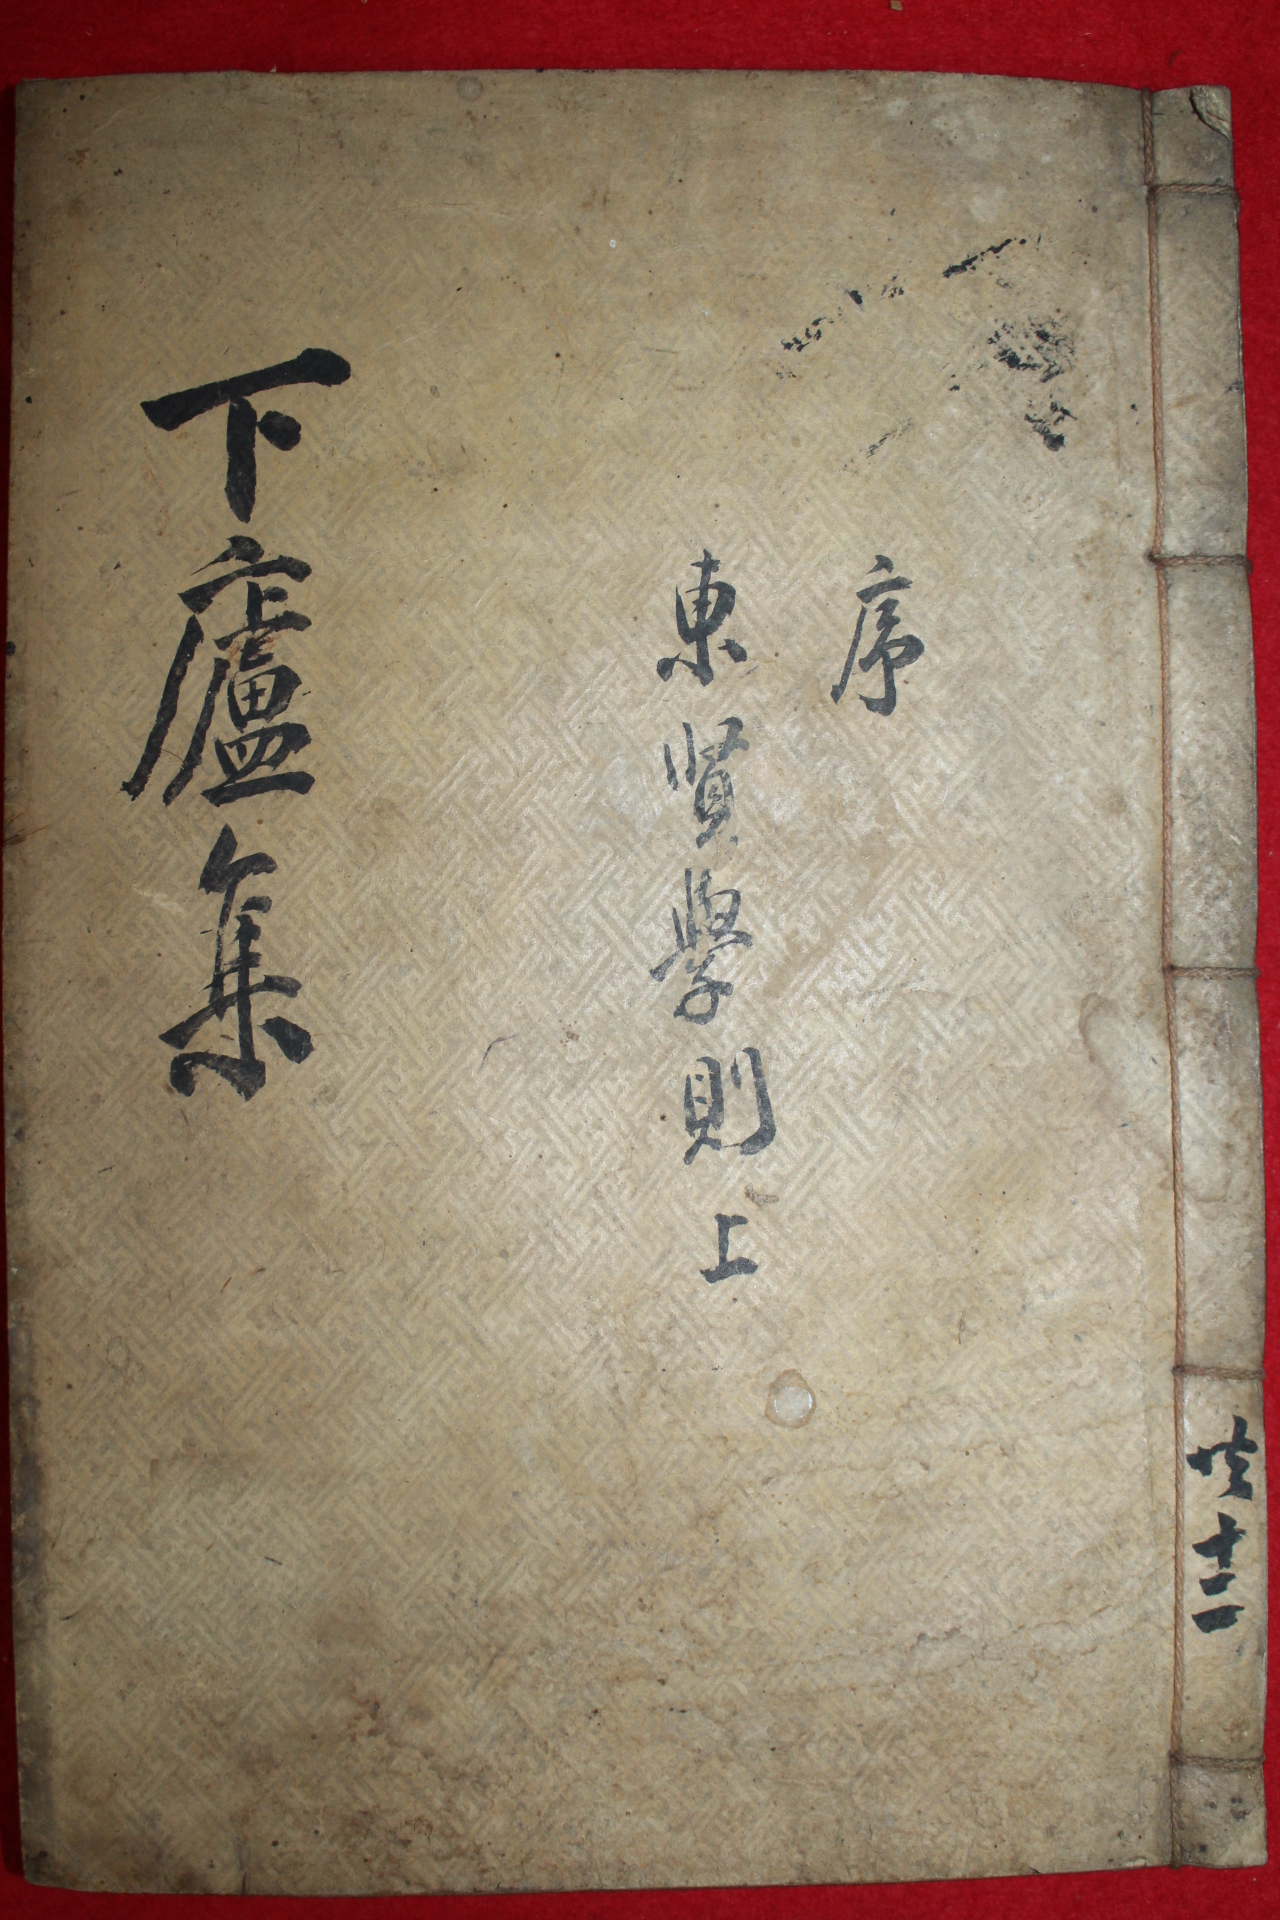 共十二
序
東賢學則上
下廬集